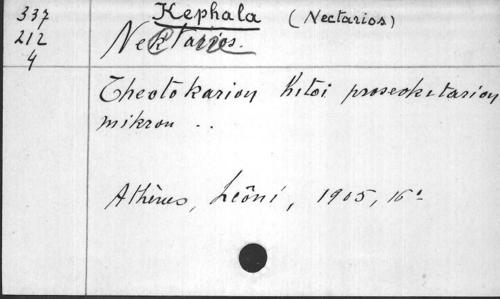 337 Kephala (Nectarios)
212 Nektarios.
4
Theotokarion hitoi proseuketarion
mikron ..
Athènes, Leôni, 1905, 16º